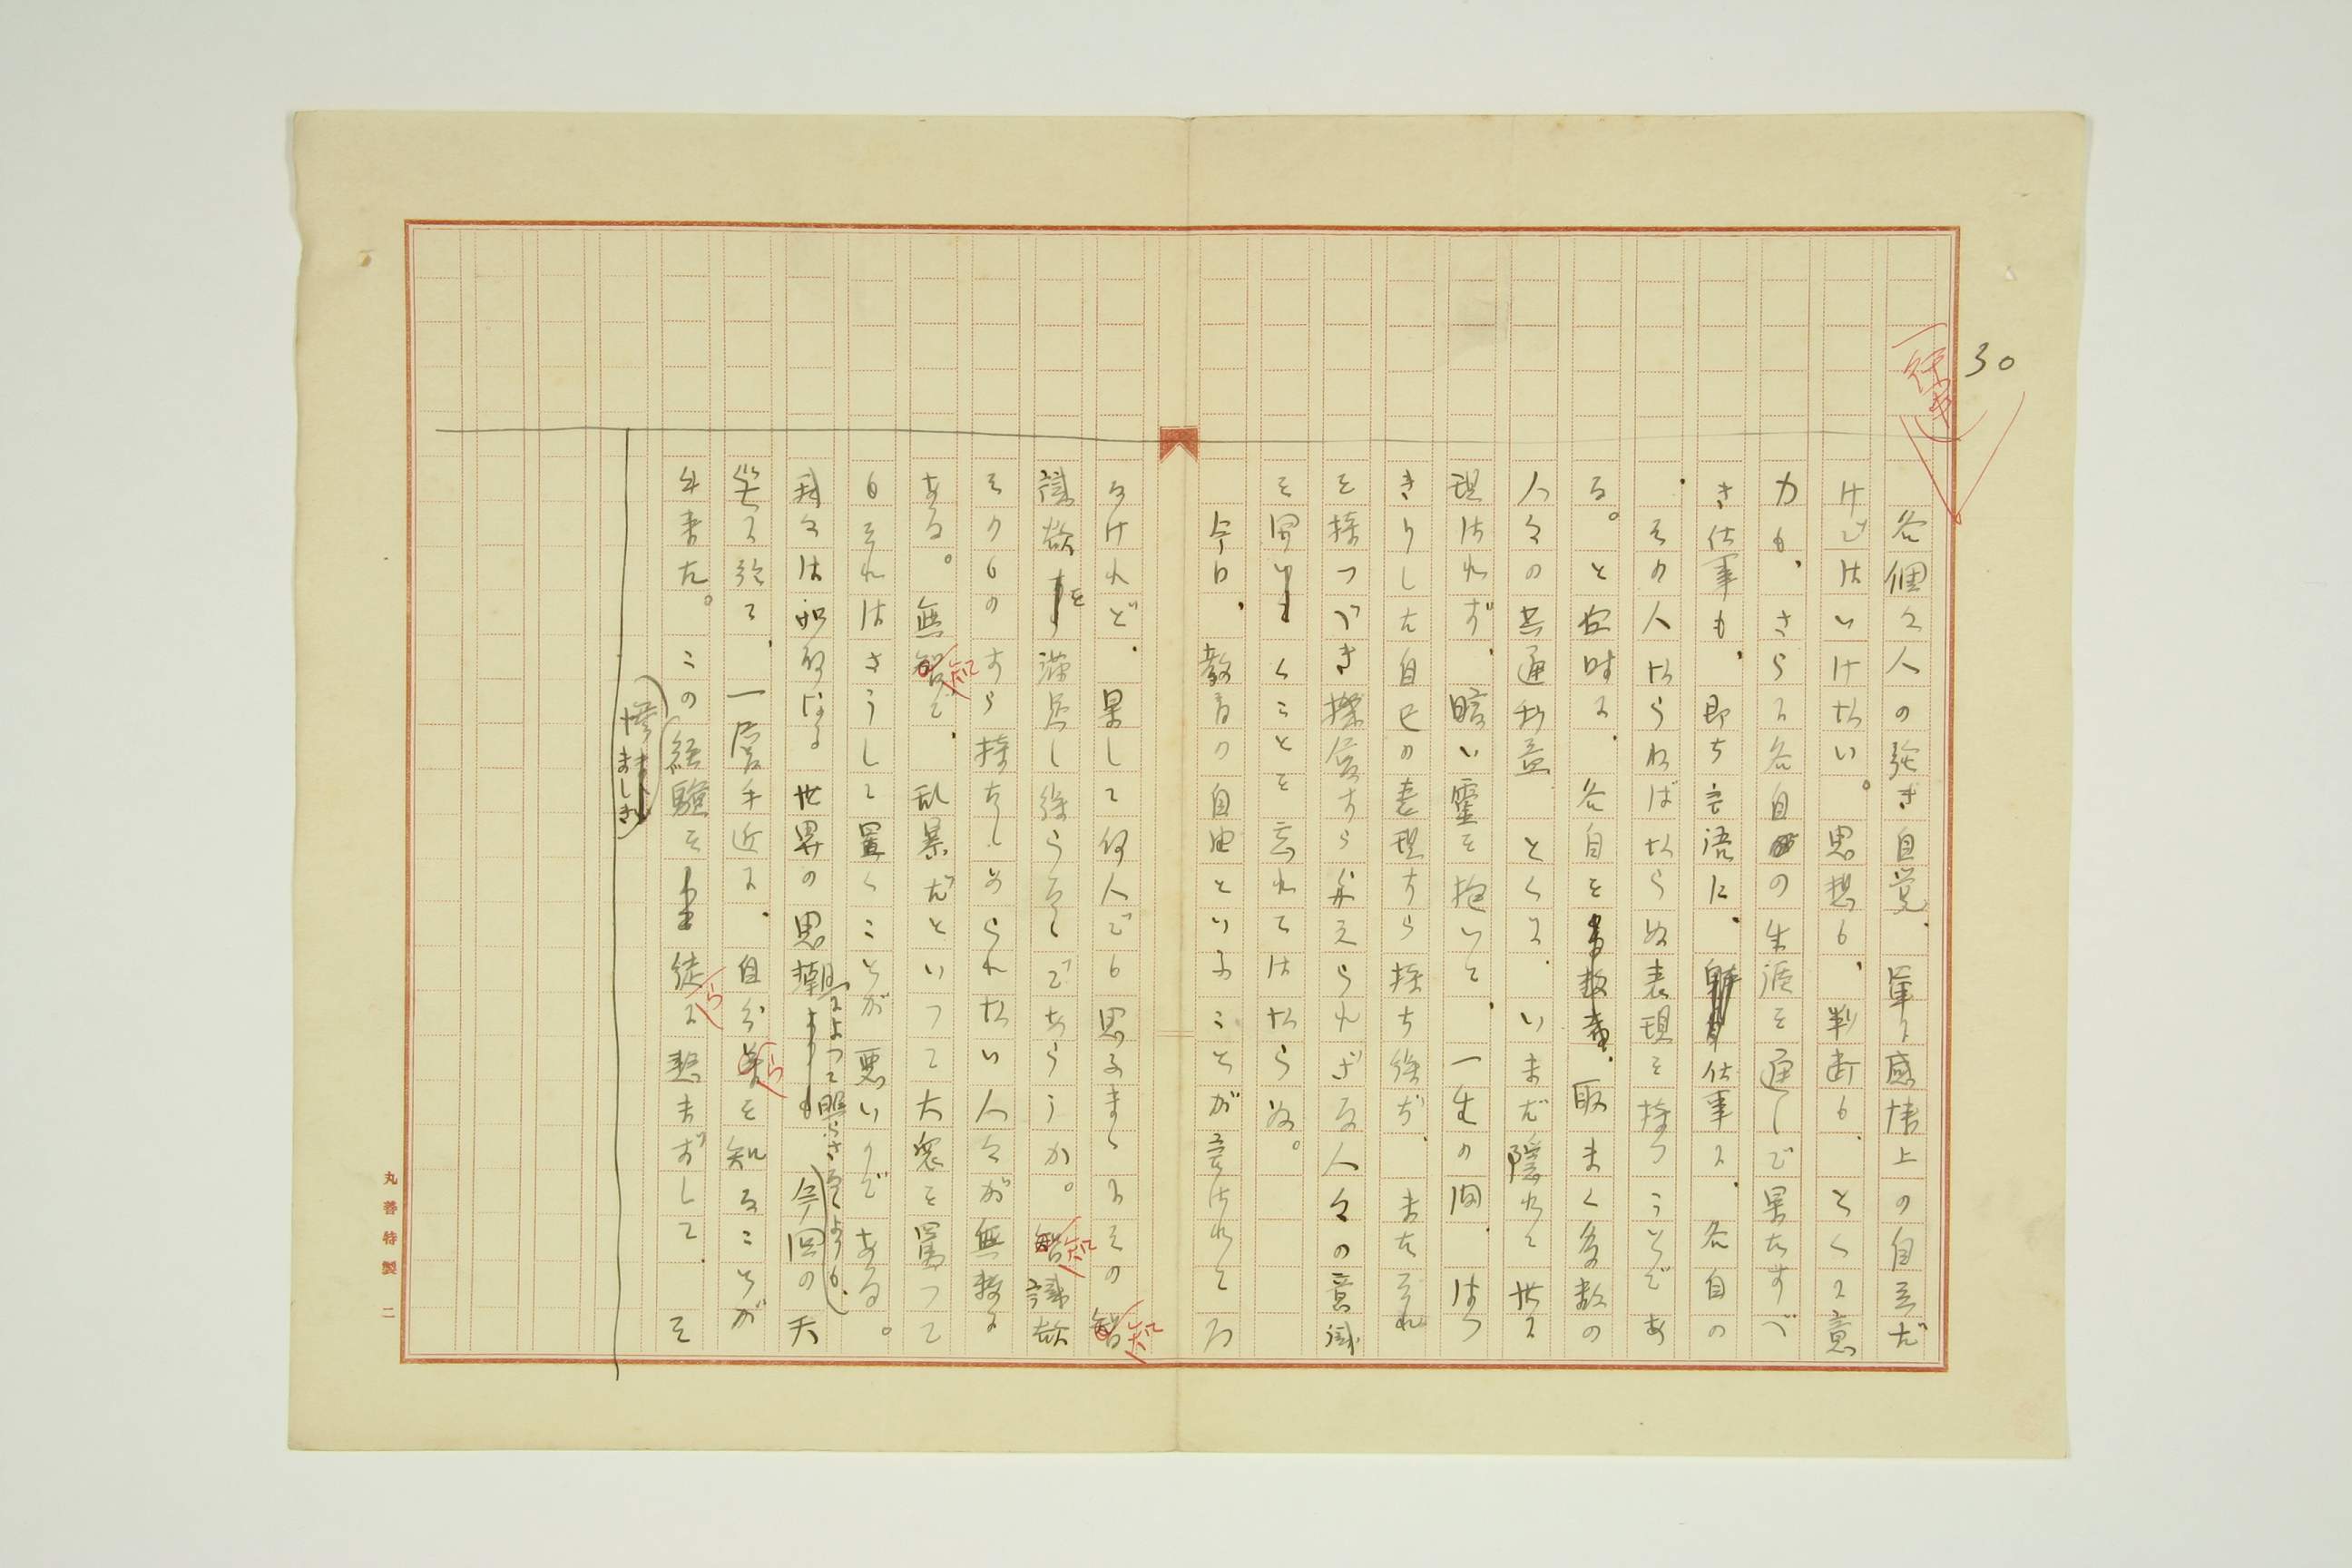 30
各個々人の強き自覚、単に感情上の自立だ
けではいけない。思想も、判断も、とくに意
力も、さらに各自の生涯を通して果たすべ
き仕事も、即ち言語に、仕事に、各自の
その人ならねばならぬ表現を持つことであ
る。と同時に、各自を取まく多数の
人々の共通利益 とくに、いまだ隠れて世に
現はれず、暗い霊を抱いて、一生の間、はつ
きりした自己の表現すら持ち得ず、またそれ
を持つべき機会すら与えられざる人々の意識
を開くことを忘れてはならぬ。
今日、教育の自由といふことが言はれてゐ
るけれど、果して何人でも思ふまゝにその智知
識慾を満足し得らるゝであらうか。智知識慾
そのものすら持ちしめられない人々が無数に
ある。無智知で、乱暴だといつて大衆を罵つて
もそれはさうして置くことが悪いのである。
我々は如何なる世界の思潮によつて照らさるゝよりも、今回の天
災に於て、一層手近に、自分等らを知ることが
出来た。この惨ましき経験を徒らに愁まずして、そ
丸善特製 二